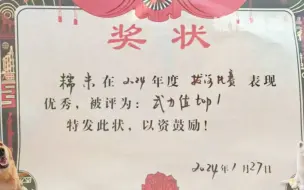 奖状
糯米在2024年度拔河比赛表现
优秀，被评为：武力值top1
特发此状，以资鼓励！
2024年1月27日